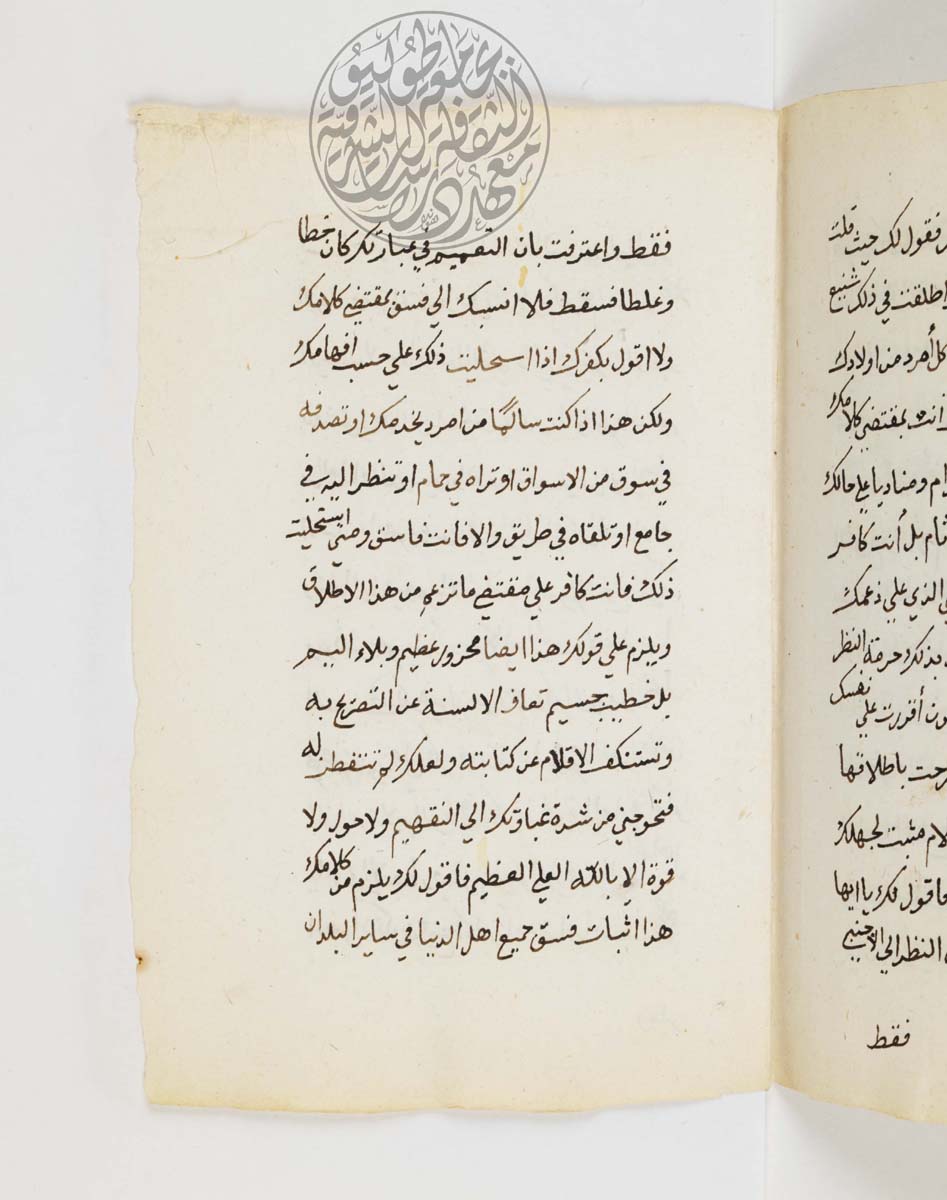 فقط واعترفت بان التعميم في عبارتك كان خطا
وغلطا فسقط فلا انسبك الي فسق بمقتضي كلامك
ولا اقول بكفرك اذا استحليت ذلك علي حسب افهامك
ولكن هذا اذا كنت سالمًا من امرد يخدمك او تصدفه
في سوق من الاسواق او تراه في حمام او تنظر اليه في
جامع او تلقاه في طريق والا فانت فاسق ومتي استحليت
ذلك فانت كافر علي مقتضي ما تزعم من هذا الاطلاق
ويلزم علي قولك هذا ايضا محزور عظيم وبلاء اليم
بل خطب جسيم تعاف الالسنة عن التصريح به
وتستنكف الاقلام عن كتابته ولعلك لم تتفطن له
فتحوجني من شدة غباوتك الي التفهيم ولا حول ولا
قوة الا بالله العلي العظيم فاقول لك يلزم من كلامك
هذا اثبات فسق جميع اهل الدنيا في ساير البلدان
فقول لك حيث قلت
اطلقت في ذلك شنيع
كل أمرد من اولادك
انت بمقتضي كلامك
ومناديا علي حالك
بل أنت كافر
الذي علي زعمك
بذلك حرمة النظر
أقررت علي نفسك
باطلاقها
مثبت لجهلك
فاقول لك يا ايها
النظر الي الاجنبي
فقط
معهد دراسات الثقافة الشرقية
بجامعة طوكيو